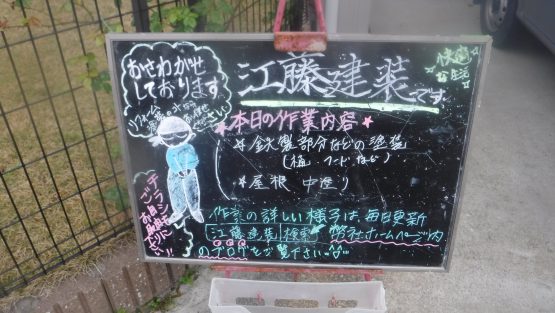 おさわがせ
しております
江藤建装です。
快適
な生活
★本日の作業内容★
☆鉄製部分などの塗装
(樋 フードなど)
☆屋根 中塗り
チラシ
ご自由に
お取りください!
作業の詳しい様子は、毎日更新
江藤建装 検索 弊社ホームページ内
のブログをご覧下さい